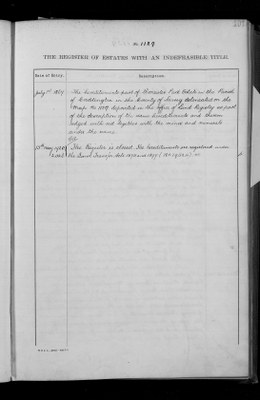 No. 1189
THE REGISTER OF ESTATES WITH AN INDEFEASIBLE TITLE.
Date of Entry.
Description.
The hereditaments part of Worcester Park Estate in the Parish
of Cuddington in the County of Surrey delineated on the
Map No. 1189 deposited in the office of Land Registry as part
of the description of the same hereditaments and thereon
edged with red together with the mines and minerals
under the same
The Register is closed. The hereditaments are registered under
the Land Transfer